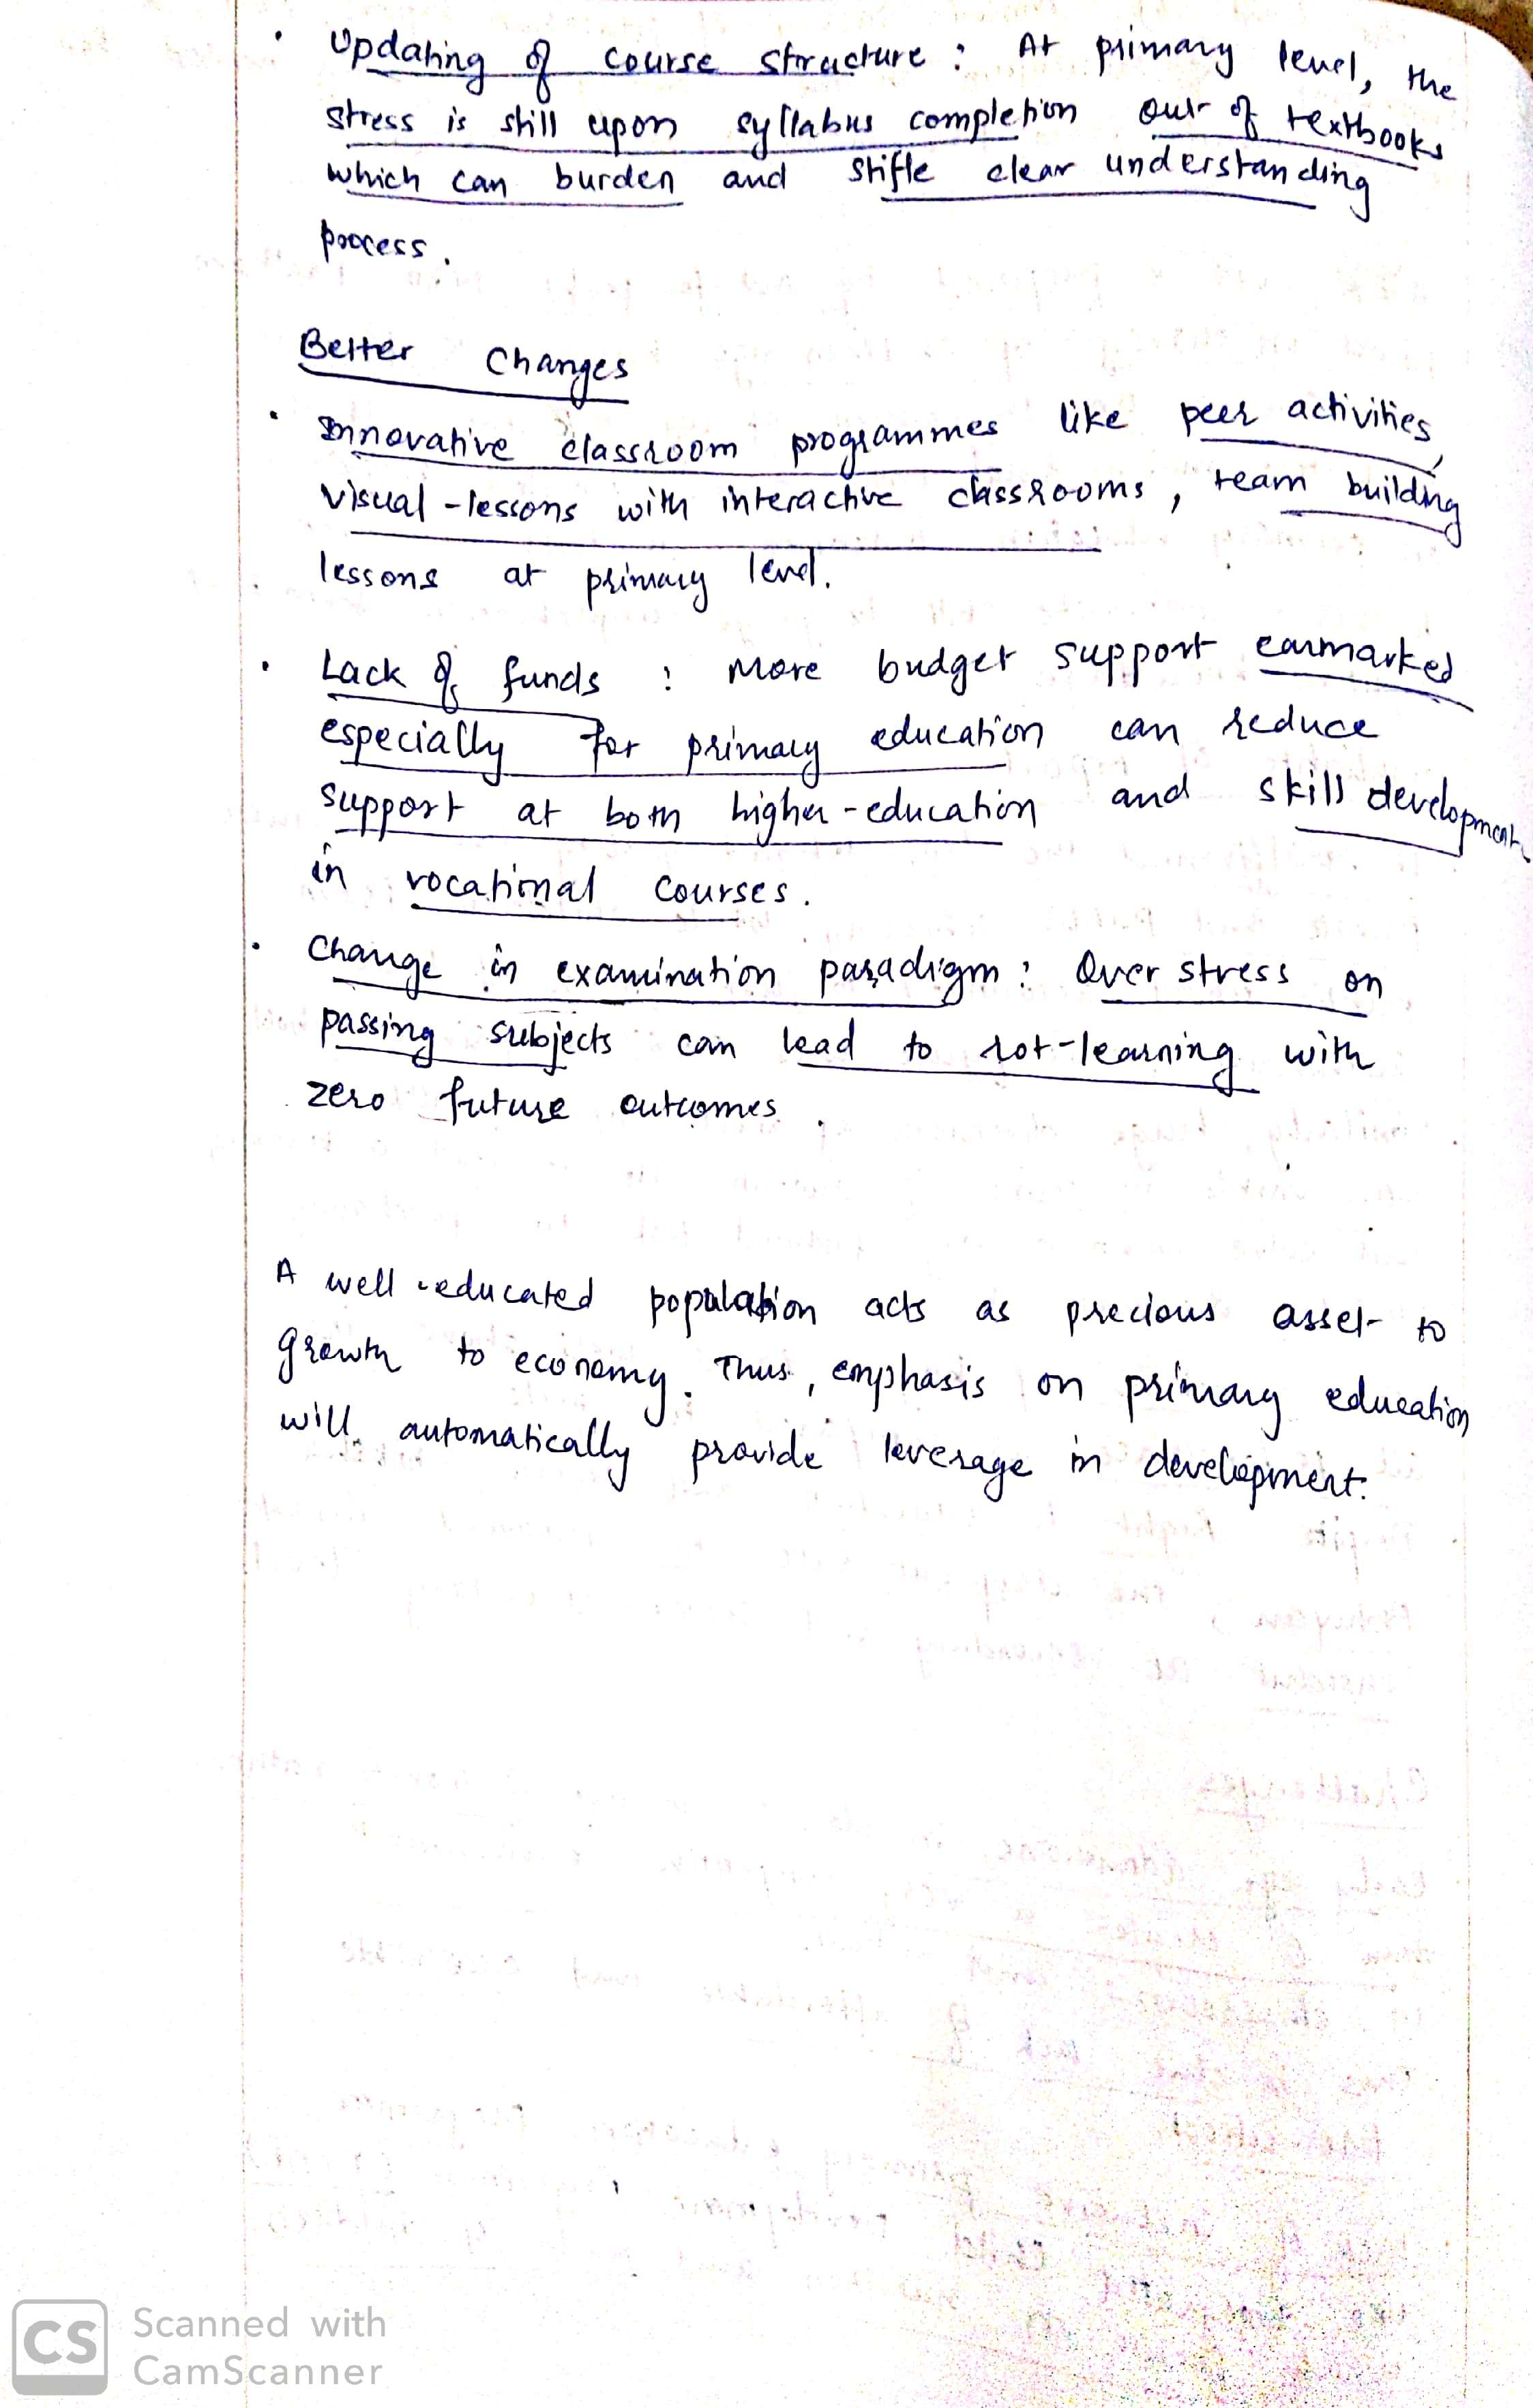 • Updating of course structure : At primary level, the
stress is still upon syllabus completion out of textbooks
which can burden and stifle clear understanding
process.
Better Changes
• Innovative classroom programmes like peer activities,
visual-lessons with interactive classrooms, team building
lessons at primary level.
• Lack of funds : More budget support earmarked
especially for primary education can reduce
support at both higher-education and skill development
in vocational courses.
• Change in examination paradigm : Over stress on
passing subjects can lead to rot-learning with
zero future outcomes.
A well-educated population acts as precious asset to
growth to economy. Thus, emphasis on primary education
will automatically provide leverage in development.
CS Scanned with
CamScanner